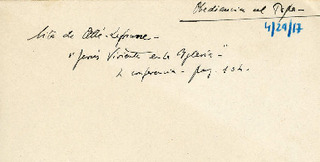 Obediencia al Papa—
4/29/17
Cita de Ollé-Laprune—
"Jesús Viviente en la Iglesia"
conferencia - pag. 104.